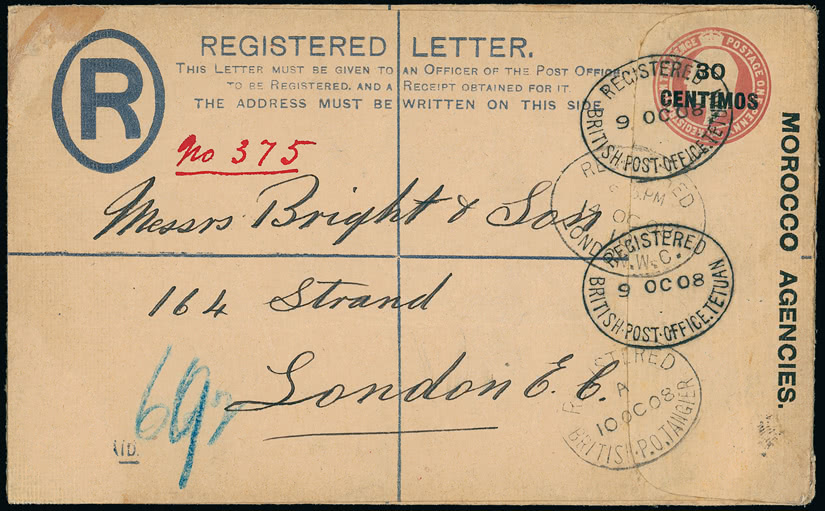 REGISTERED LETTER.
THIS LETTER MUST BE GIVEN TO AN OFFICER OF THE POST OFFICE
TO BE REGISTERED, AND A RECEIPT OBTAINED FOR IT.
THE ADDRESS MUST BE WRITTEN ON THIS SIDE
R
No 375
POSTAGE ONE PENNY
30
CENTIMOS
MOROCCO AGENCIES.
REGISTERED
9 OC 08
BRITISH·POST·OFFICE·TETUAN
Messrs Bright & Son
REGISTERED
PM
OC
LONDON W.C.
REGISTERED
9 OC 08
BRITISH·POST·OFFICE.TETUAN
164 Strand
London E.C.
REGISTERED
A
10 OC 08
BRITISH·P.O.TANGIER